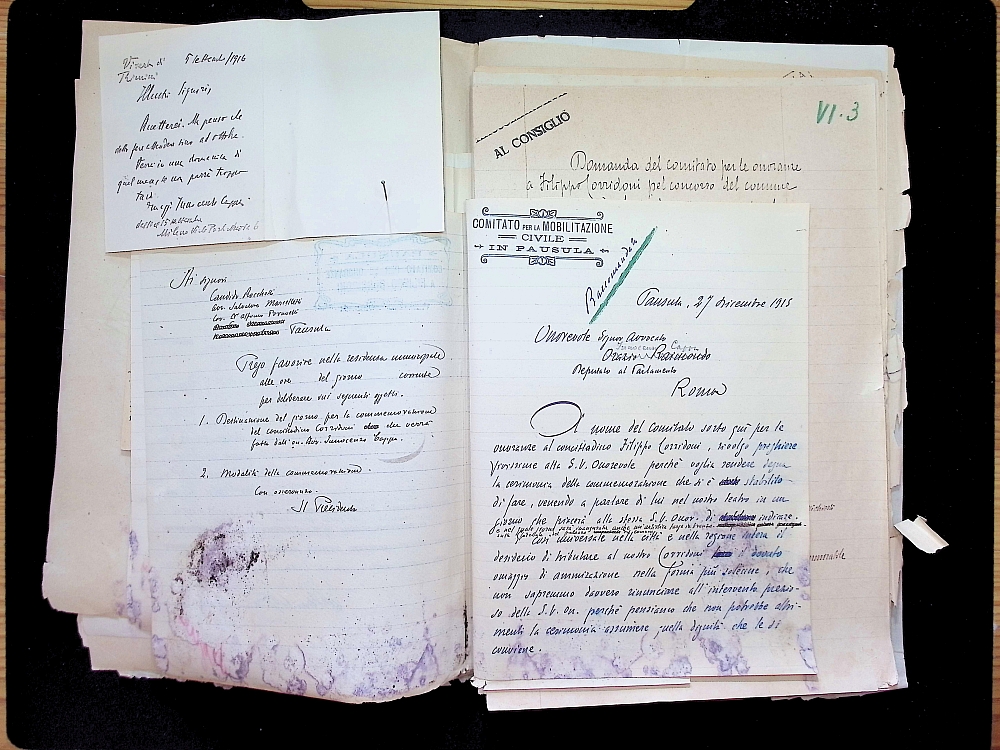 5 settembre/1916
Illustri Signori,
Accetterei. Ma penso che
Verrei in una domenica di
tardi.
Innocenzo Cappa
Milano
Ai Signori
Candido
Avv. Salvatore
Cav. Dr Alfonso
Pausula
Prego favorire nella residenza municipale
alle ore del giorno corrente
per deliberare sui seguenti oggetti.
1. Destinazione del giorno per la commemorazione
del concittadino Corridoni che verrà
fatta dall'on. Avv. Innocenzo Cappa.
2. Modalità della commemorazione.
Con osservanza.
Il Presidente
VI.3
AL CONSIGLIO
Domanda del comitato per le onoranze
a Filippo Corridoni pel concorso del comune
COMITATO PER LA MOBILITAZIONE
CIVILE
IN PAUSULA
Raccomandata
Pausula, 27 dicembre 1915
Onorevole Signor Avvocato
Innocenzo Cappa
Orazio Raimondo
Deputato al Parlamento
Roma
A nome del Comitato sorto qui per le
onoranze al concittadino Filippo Corridoni, rivolgo preghiera
vivissima alla S.V. Onorevole perchè voglia rendere degna
la cerimonia della commemorazione che si è stabilito
di fare, venendo a parlare di lui nel nostro teatro in un
giorno che piacerà alla stessa S.V. Onor. di indicare.
Così universale nella città e nella regione intera il
desiderio di tributare al nostro Corridoni il dovuto
omaggio di ammirazione nella forma più solenne, che
non sapremmo davvero rinunciare all'intervento prezio-
so della S.V. On. perchè pensiamo che non potrebbe altri-
menti la cerimonia assumere quella dignità che le si
conviene.